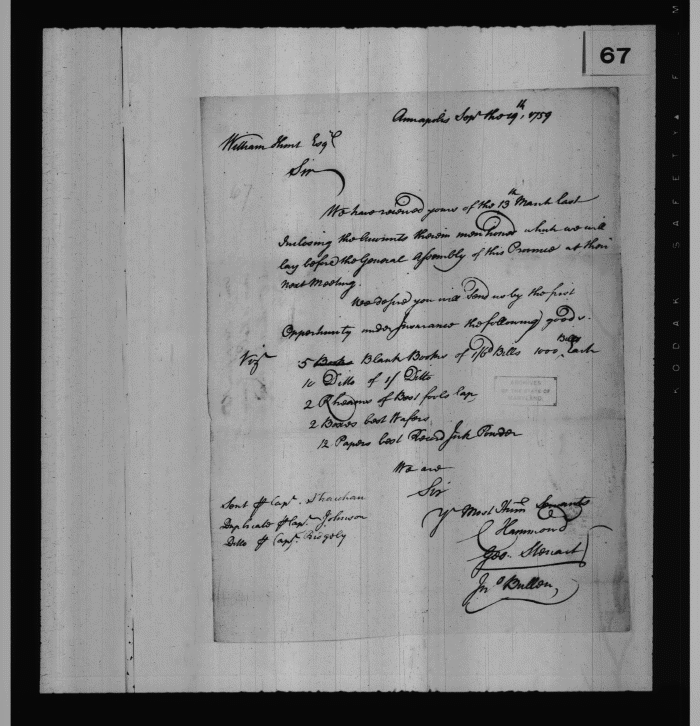 67
Annapolis Sepr the 19th, 1759
William Hunt Esqr
Sir
We have received yours of the 13th March last
Inclosing the Accounts therein mentioned which we will
lay before the General Assembly of this Province at their
next Meeting.
We desire you will Send us by the first
Opportunity under Insurance the following goods.
Vizt
5 Books Blank Books of 1/6d Bills 1000 Bills Each
10 Ditto of 1/ Ditto
2 Rheams of Best fools Cap
2 Boxes best Wafers
12 Papers best Record Ink Powder
ARCHIVES
OF THE STATE OF
MARYLAND
We are
Sir
Yr Most Hum Servants
Hammond
Geo. Steuart
Jno Bullen
Sent Capt.
Duplicate Capt. Johnson
Ditto Capt.
KODAK SAFETY FILM